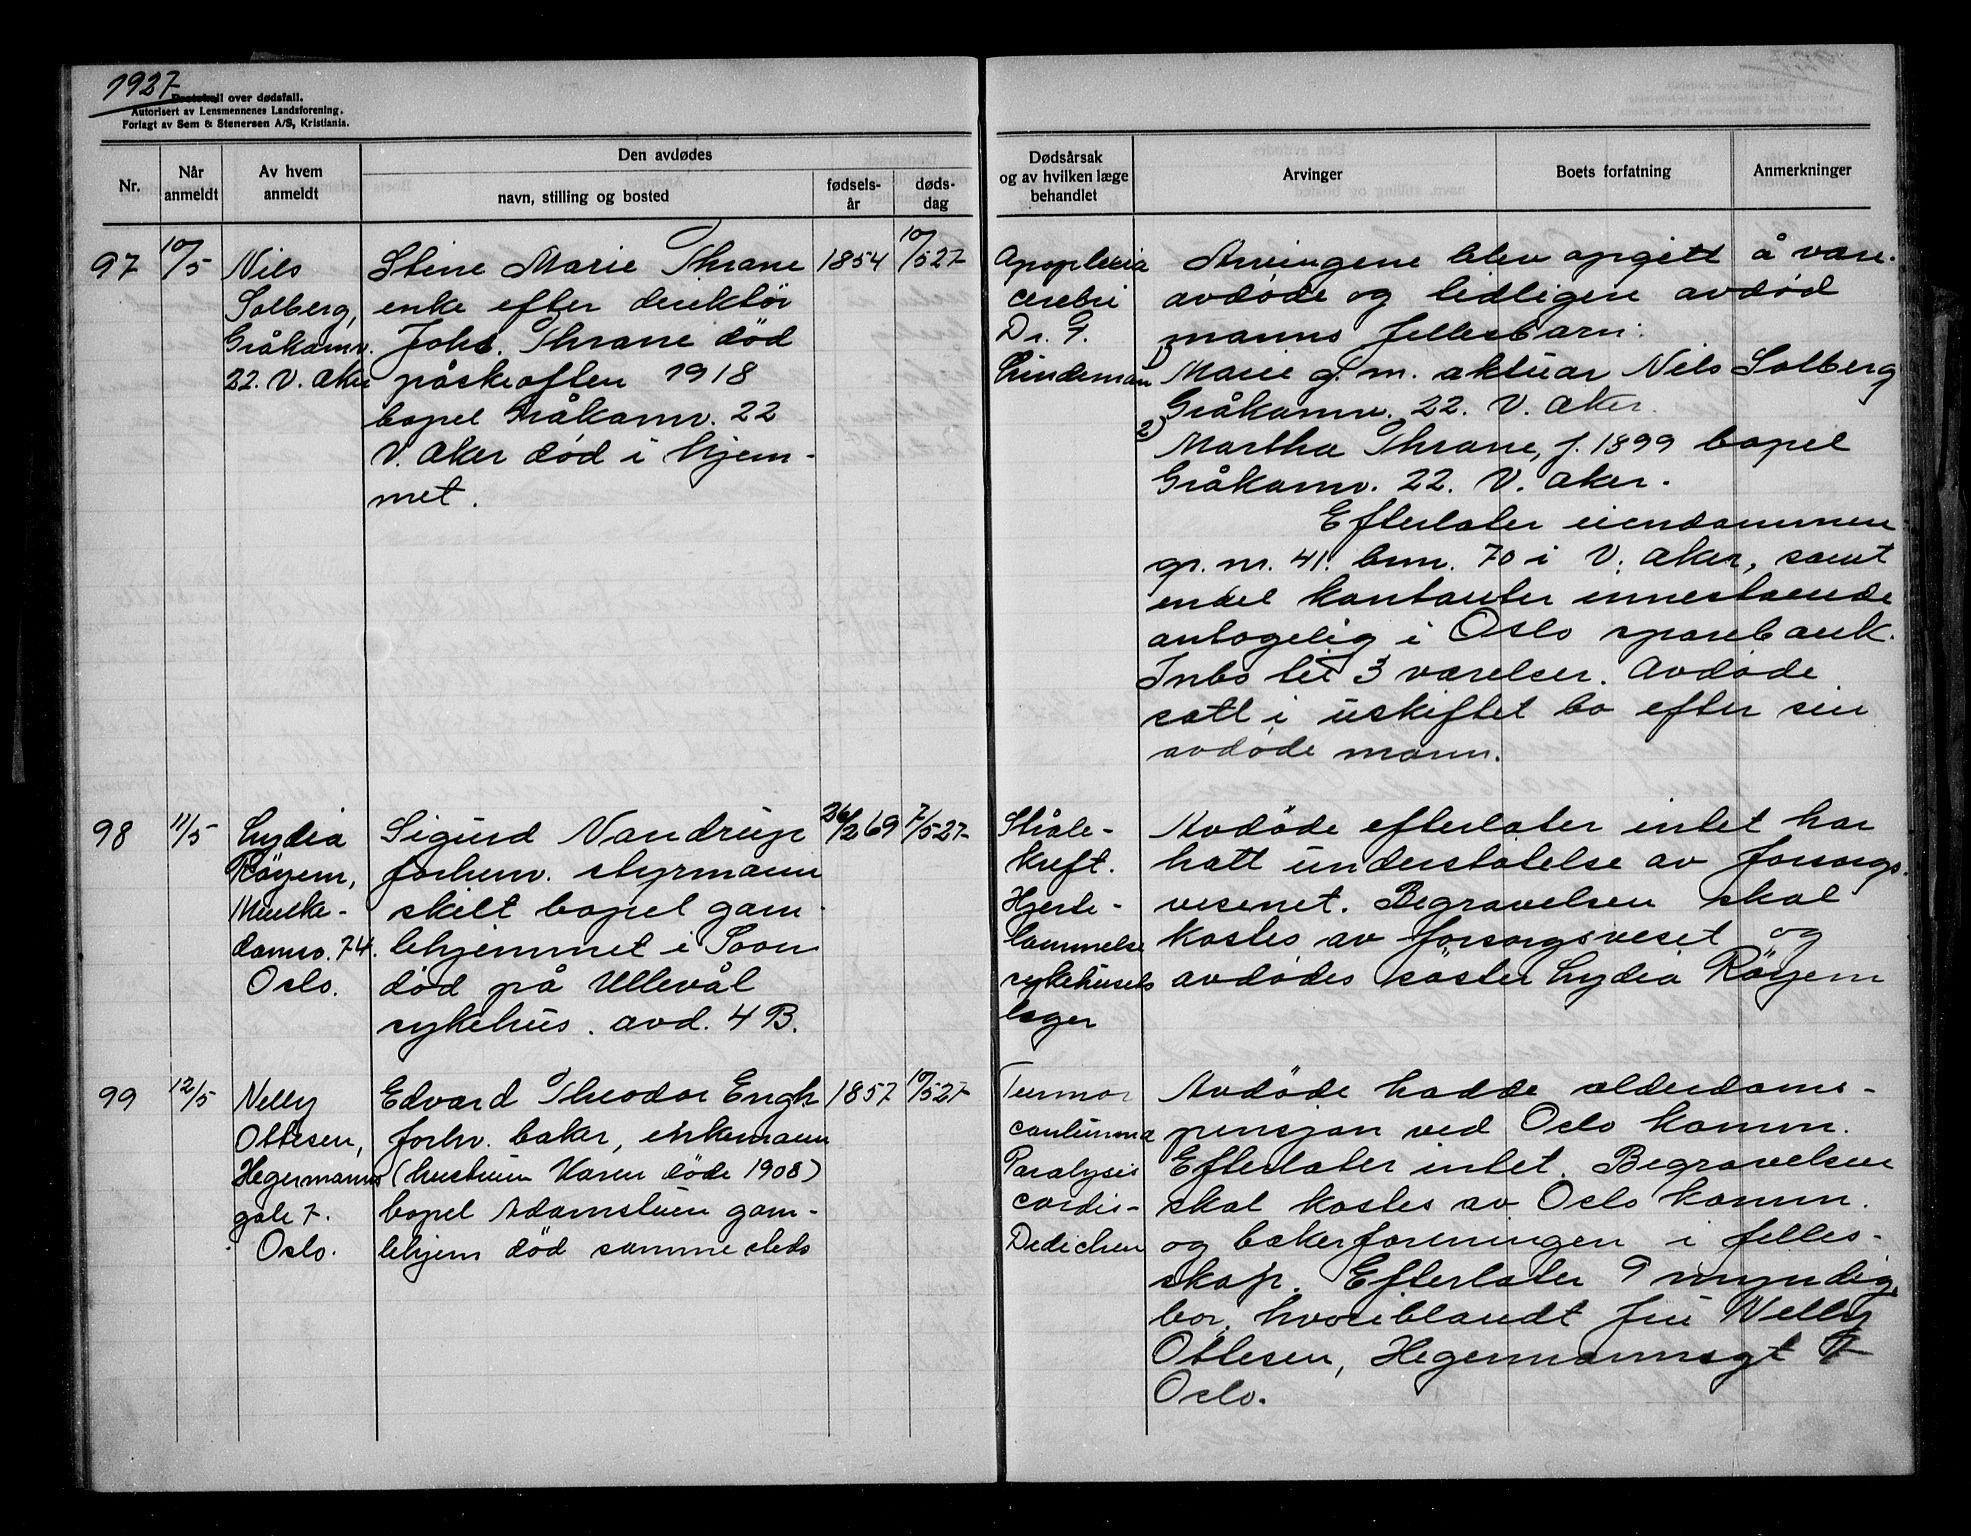 1927
Protokoll over dødsfall.
Autorisert av Lensmennenes Landsforening.
Forlagt av Sem & Stenersen A/S, Kristiania.
Nr.
Når anmeldt
Av hvem anmeldt
Den avdødes
navn, stilling og bosted
fødselsår
dødsdag
Dødsårsak og av hvilken læge behandlet
Arvinger
Boets forfatning
Anmerkninger
97
10/5
Nils
Solberg,
Gråkamv.
22. V. Aker
Stine Marie Thrane
enke efter direktør
Johs. Thrane død
påskeaften 1918
bopel Gråkamv. 22
V. Aker død i hjem-
met.
1854
10/5 27
Apoplexia
cerebri
Dr. G.
Lindeman
Arvingene blev opgitt å være.
avdøde og tidligere avdød
manns fellesbarn:
1) Marie g. m. aktuar Nils Solberg
Gråkamv. 22. V. Aker.
2) Martha Thrane, f. 1899 bopel
Gråkamv. 22. V. Aker.
Efterlater eiendommen
gr. nr. 41. bnr. 70 i V. Aker, samt
endel kontanter innestående
antagelig i Oslo sparebank.
Inbo til 3 værelser. Avdøde
satt i uskiftet bo efter sin
avdøde mann.
98
11/5
Lydia
Röyem,
Munke-
damsv. 74.
Oslo.
Sigurd Nandrup
forhenv. styrmann
skilt bopel gam-
lehjemmet i Soon
død på Ullevål
sykehus. avd. 4 B.
26/2 69
7/5 27
Stråle-
kreft.
Hjerte-
lammelse
sykehusets
læger
Avdøde efterlater intet har
hatt understøtelse av forsorgs.
vesenet. Begravelsen skal
kostes av forsorgsveset og
avdødes søster Lydia Röyem
99
12/5
Nelly
Ottesen,
Hegermanns
gate 7.
Oslo.
Edvard Theodor Engh
forhv. baker, enkemann
(hustruen Karen døde 1908)
bopel Adamstuen gam-
lehjem død samme steds
1857
10/5 27
Tumor
Paralysis
cordis-
Dedichen
Avdøde hadde alderdoms-
pensjon ved Oslo komm.
Efterlater intet. Begravelsen
skal kostes av Oslo komm.
og bakerforeningen i felles-
skap. Efterlater 9 myndige
bar, hvoriblandt fru Nelly
Ottesen, Hegermannsgt 7
Oslo.